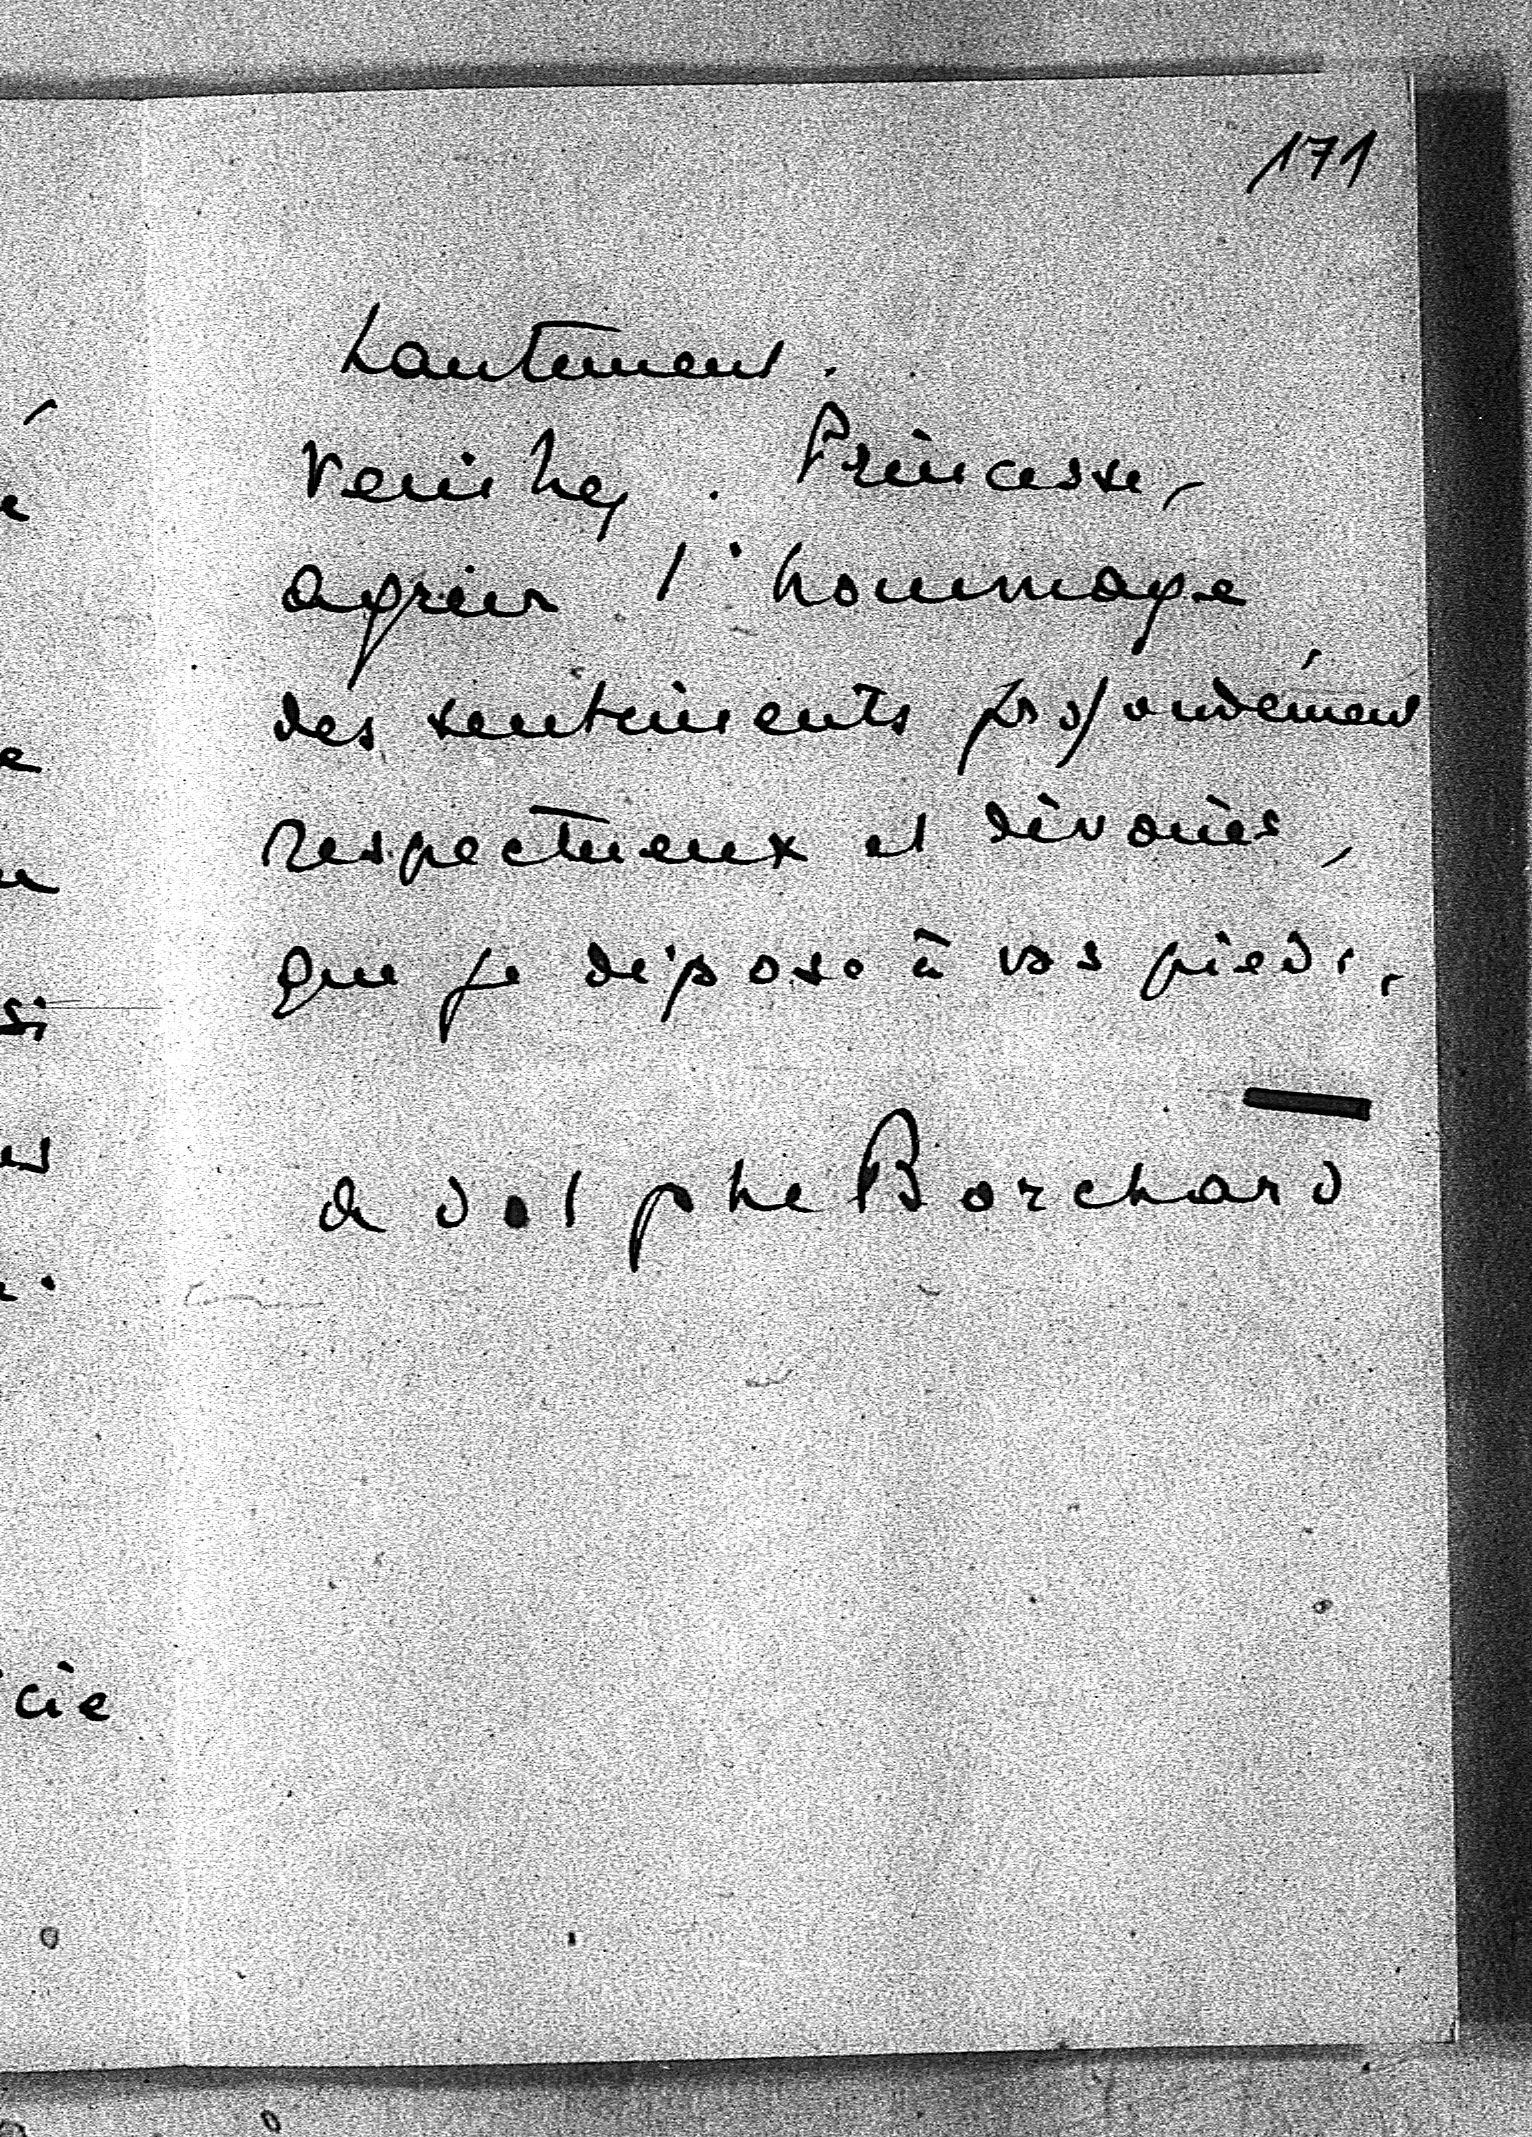 171
hautement.
Veuillez, Princesse,
agréer l'hommage
des sentiments profondément
respectueux et dévoués,
que je dépose à vos pieds.
Adolphe Borchard